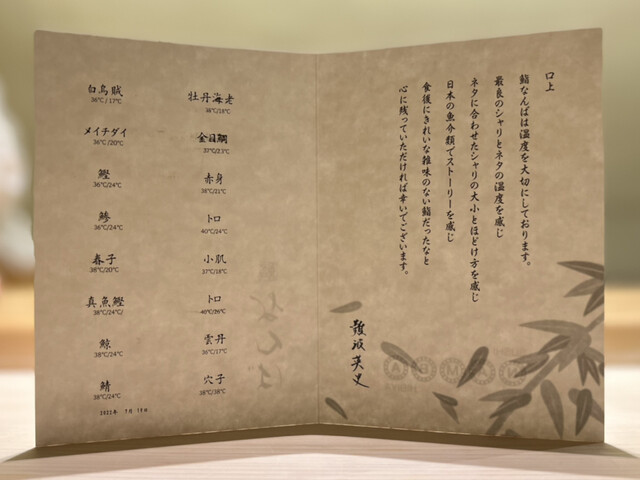 口上
鮨なんばは温度を大切にしております。
最良のシャリとネタの温度を感じ
ネタに合わせたシャリの大小とほどけ方を感じ
日本の魚介類でストーリーを感じ
食後にきれいな雑味のない鮨だったなと
心に残っていただければ幸いでございます。
難波英史
白烏賊
36℃/17℃
メイチダイ
36℃/20℃
鰹
36℃/24℃
鯵
36℃/24℃
春子
38℃/20℃
真魚鰹
38℃/24℃/
鯨
38℃/24℃
鯖
38℃/24℃
牡丹海老
38℃/18℃
金目鯛
37℃/23℃
赤身
38℃/21℃
トロ
40℃/24℃
小肌
37℃/18℃
トロ
40℃/26℃
雲丹
36℃/17℃
穴子
38℃/38℃
2022年 7月 19日
なんば